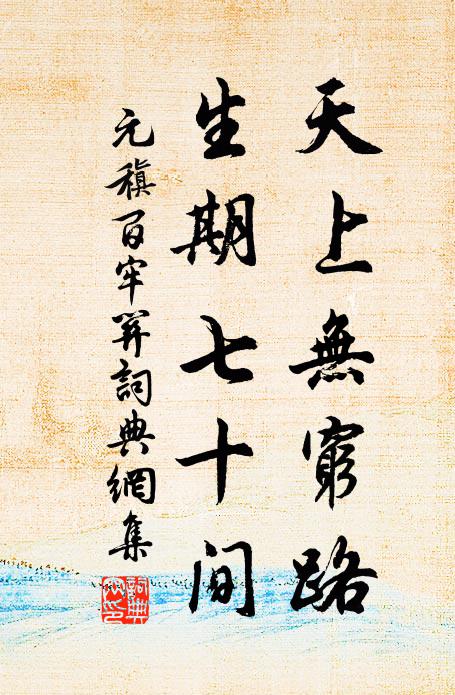 天上無窮路
生期七十间
元稹百牢關詞典網集